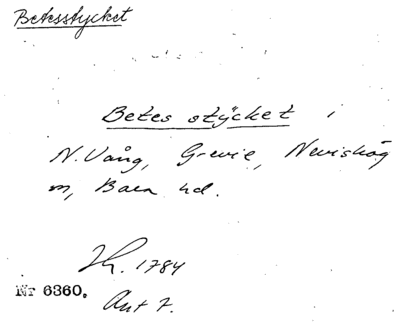 Betesstycket
Betes stycket i
N. Vång, Grevie, Neviskög
m, Bara hd.
Lh. 1784
Nr 6360.
Akt 7.